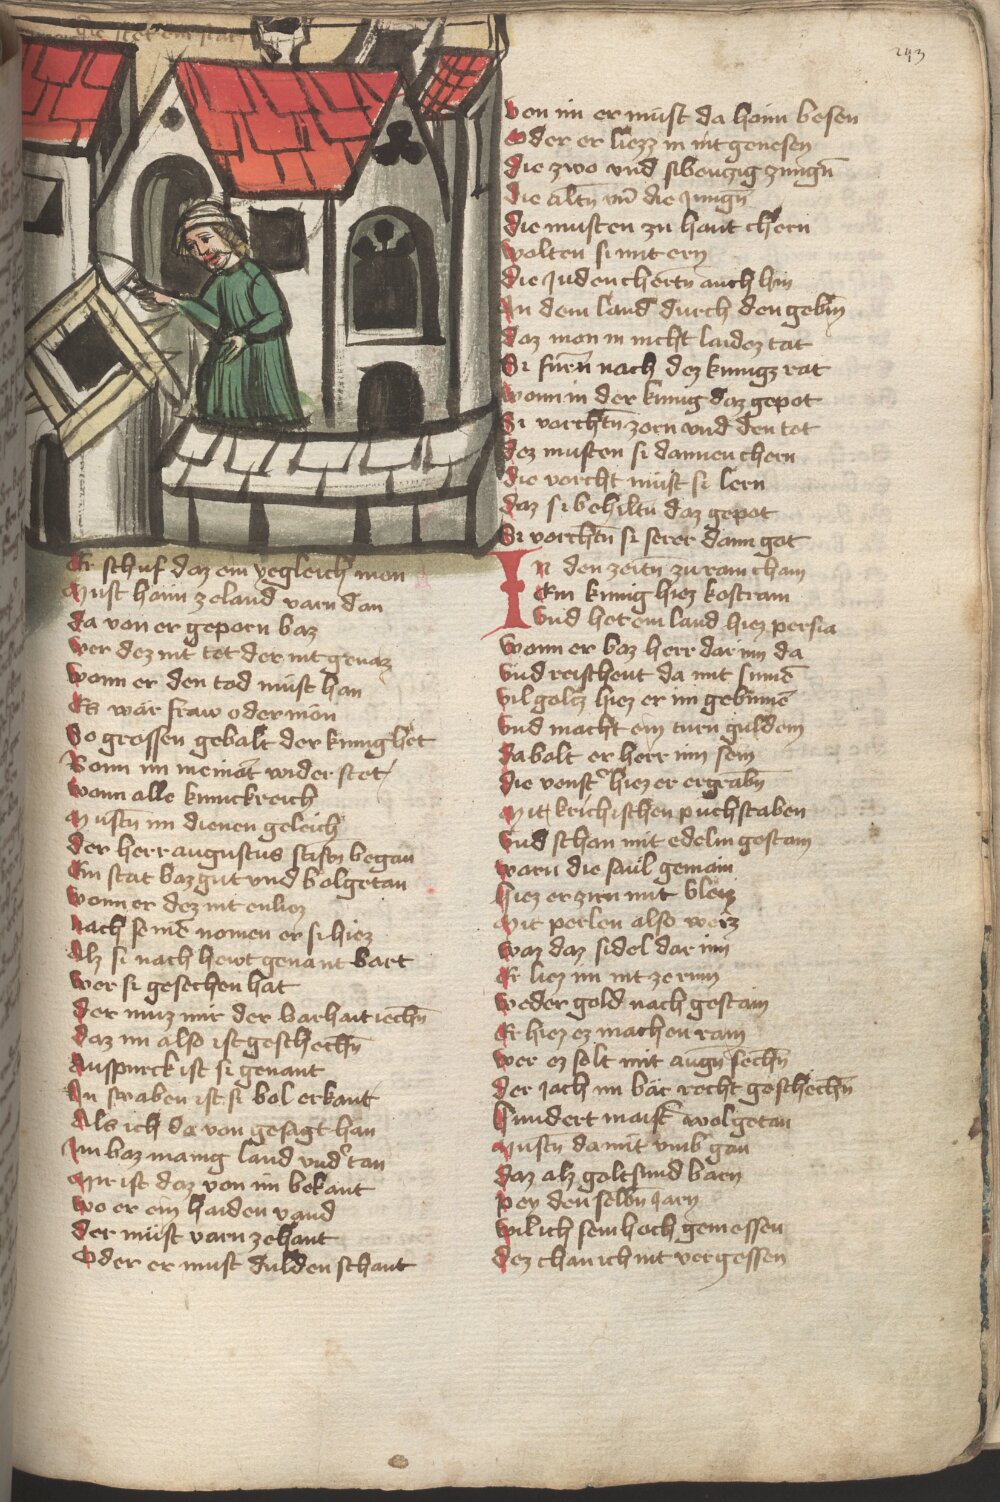 243
Er schuf daz ein yegleich man
Must hann zeland varn dan
Da von er geporn waz
Wer dez nit tet der nit genaz
Wann er den tod must han
Ez wär fraw oder man
So grossen gebalt der kunig het
Wann im niemant wider stet
Wann alle kunickreich
Mustn im dienen geleich
Der herr augustus stiftn began
Ein stat waz gut vnd wolgetan
Wann er dez nit enliez
Nach seinē namen er si hiez
Alz si nach hewt genant wart
Wer si gesechen hat
Der muz mir der warhait iechn̄
Daz im also ist geschechn̄
Auspurck ist si genant
In swaben ist si wol erkant
Als ich da von gesagt han
Im waz manig land vndtan
Mir ist daz von im bekant
Wo er ein haiden vand
Der must varn zehant
Oder er must dulden schant
Von im er must da haim besen
Oder er liezz in nit genesen
Die zwo vnd sibenzig zungn̄
Die altn̄ vn̄ die jungn̄
Die musten zu hant chern
Wolten si mit ern
Die Juden chertn auch hin
In dem land durch den gebin
Daz man in nicht laidez tat
Si furn nach dez kunigz rat
Wann in der kunig daz gepot
Si vorchtn̄ zorn vnd den tot
Dez musten si dannen chern
Die vorcht must si lern
Daz si behiltn daz gepot
Si vorchtn̄ si serer dann got
In den zeitn̄ zu ram cham
Ein kunig hiez kostram
Vnd het ein land hiez persia
Wann er waz herr dar inn da
Vnd reischent da mit sinnē
Vil goltz hiez er im gebinnē
Vnd macht ein turn guldein
Da wolt er herr inn sein
Die venst hiez er ergrabn̄
Mit krichischen puchstaben
Vnd schan mit edelm gestain
Warn die saul gemain
Hiez er ziern mit vleiz
Mit perlen also weiz
Waz daz sidel dar inn
Er liez im nit zerinn
Weder gold nach gestain
Er hiez ez machen rain
Wer ez solt mit augn sechn̄
Der jach im wär recht geschechn̄
Hundert maist wolgetan
Mustn da mit vmb gan
Daz alz golt smid warn
Pey den selbn̄ jarn
Wil ich sein hoch gemessen
Dez chan ich nit vergessen